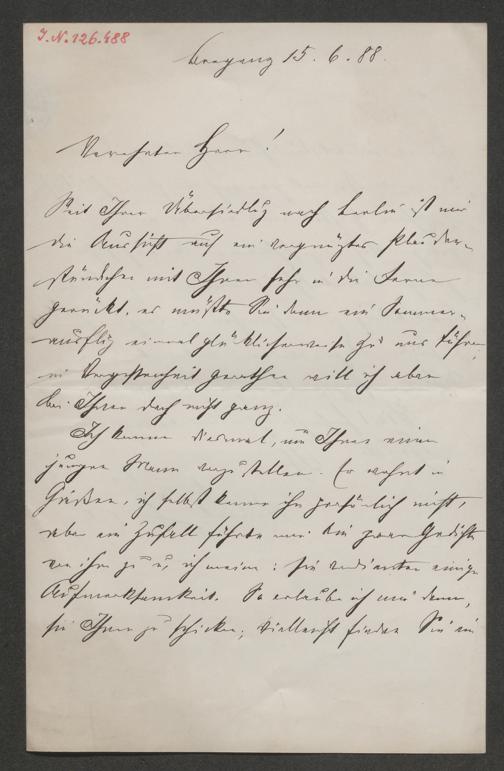 J.N. 126.488
Bregenz 15. 6. 88.
Verehrter Herr!
Seit Ihrer Übersiedlg nach Berlin ist mir
die Aussicht auf ein vergnügtes Plauder-
stündchen mit Ihnen sehr in die Ferne
gerückt, es müßte Sie denn ein Sommer-
ausflug einmal glücklicherweise zu uns führen,
in Vergessenheit gerathen will ich aber
bei Ihnen doch nicht ganz.
Ich komme diesmal, um Ihnen einen
jungen Mann vorzustellen. Er wohnt in
Gießen, ich selbst kenne ihn persönlich nicht,
aber ein Zufall führte mir die paar Gedichte
von ihm zu u, ich meine: sie verdienten einige
Aufmerksamkeit. So erlaube ich mir denn,
sie Ihnen zu schicken; vielleicht finden Sie ein